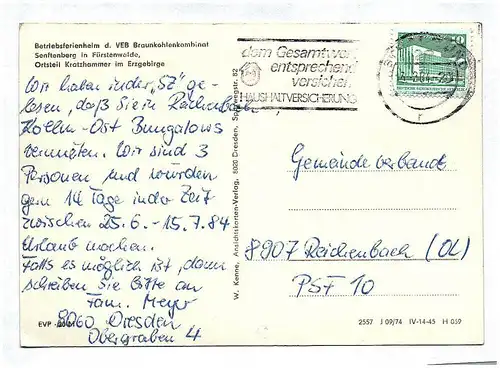 Betriebsferienheim d. VEB Braunkohlenkombinat
Senftenberg in Fürstenwalde,
Ortsteil Kratzhammer im Erzgebirge
Wir haben in der „SZ" ge-
lesen, daß Sie in Reichenbach
Ost Bungalows
vermieten. Wir sind 3
Personen und würden
gern 14 Tage in der Zeit
zwischen 25.6. - 15.7.84
Urlaub machen.
Falls es möglich ist, dann
schreiben Sie bitte an
Fam. Meyer
8060 Dresden
Obergraben 4
EVP
W. Kenne, Ansichtskarten-Verlag, 8020 Dresden, 82
dem Gesamtwert
entsprechend
versichern
HAUSHALTVERSICHERUNG
10
r
Gemeindeverband
8907 Reichenbach (OL)
PSF 10
2557 J 09/74 IV-14-45 H 059